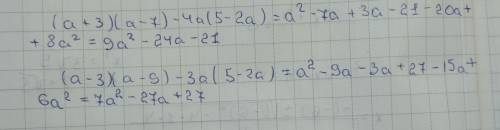 (a+3)(a-7)-4a(5-2a)=a²-7a+3a-21-20a+
+8a²=9a²-24a-21
(a-3)(a-9)-3a(5-2a)=a²-9a-3a+27-15a+
6a²=7a²-27a+27